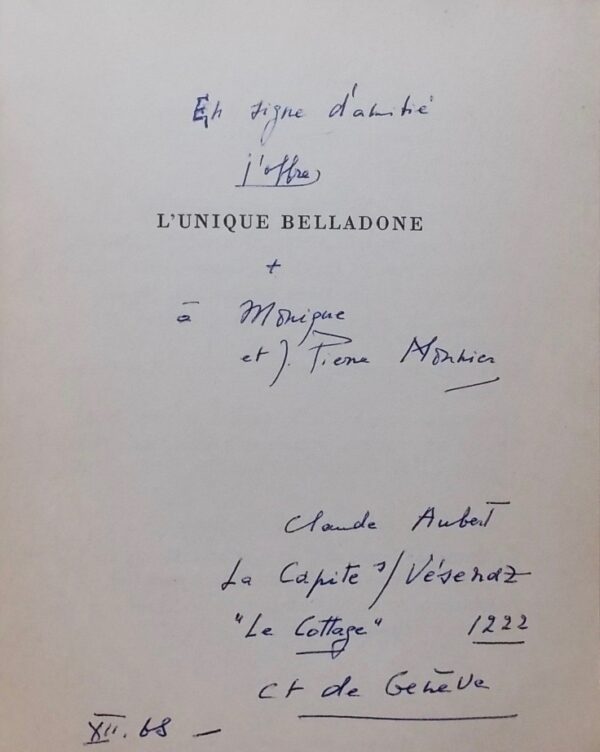 En signe d'amitié
j'offre,
L'UNIQUE BELLADONE
+
à Monique
et J. Pierre Monnier
Claude Aubert
La Capite s/Vésenaz
"Le Cottage" 1222
ct de Genève
XII. 68 —